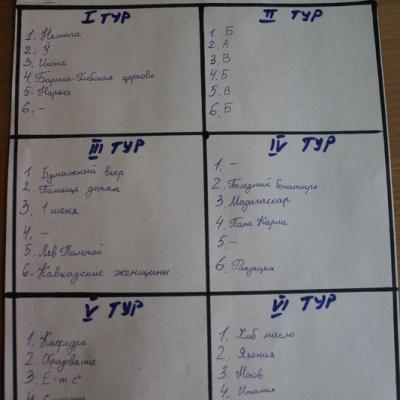 I ТУР
1. Немига
2. Ў
3. Икона
4. Бориса-Глебская церковь
5. Нарочь
6. –
II ТУР
1. Б
2. А
3. В
4. Б
5. В
6. Б
III ТУР
1. Бумажный веер
2. Помощи детям
3. 1 июня
4. –
5. Лев Толстой
6. Кавказские женщины
IV ТУР
1. –
2. Последний богатырь
3. Мадагаскар
4. Папа Карла
5. –
6.
V ТУР
1. Кафедра
2. Образование
3. E=mc²
4.
VI ТУР
1. Хлб масло
2. Япония
3. Носов
4. Италия